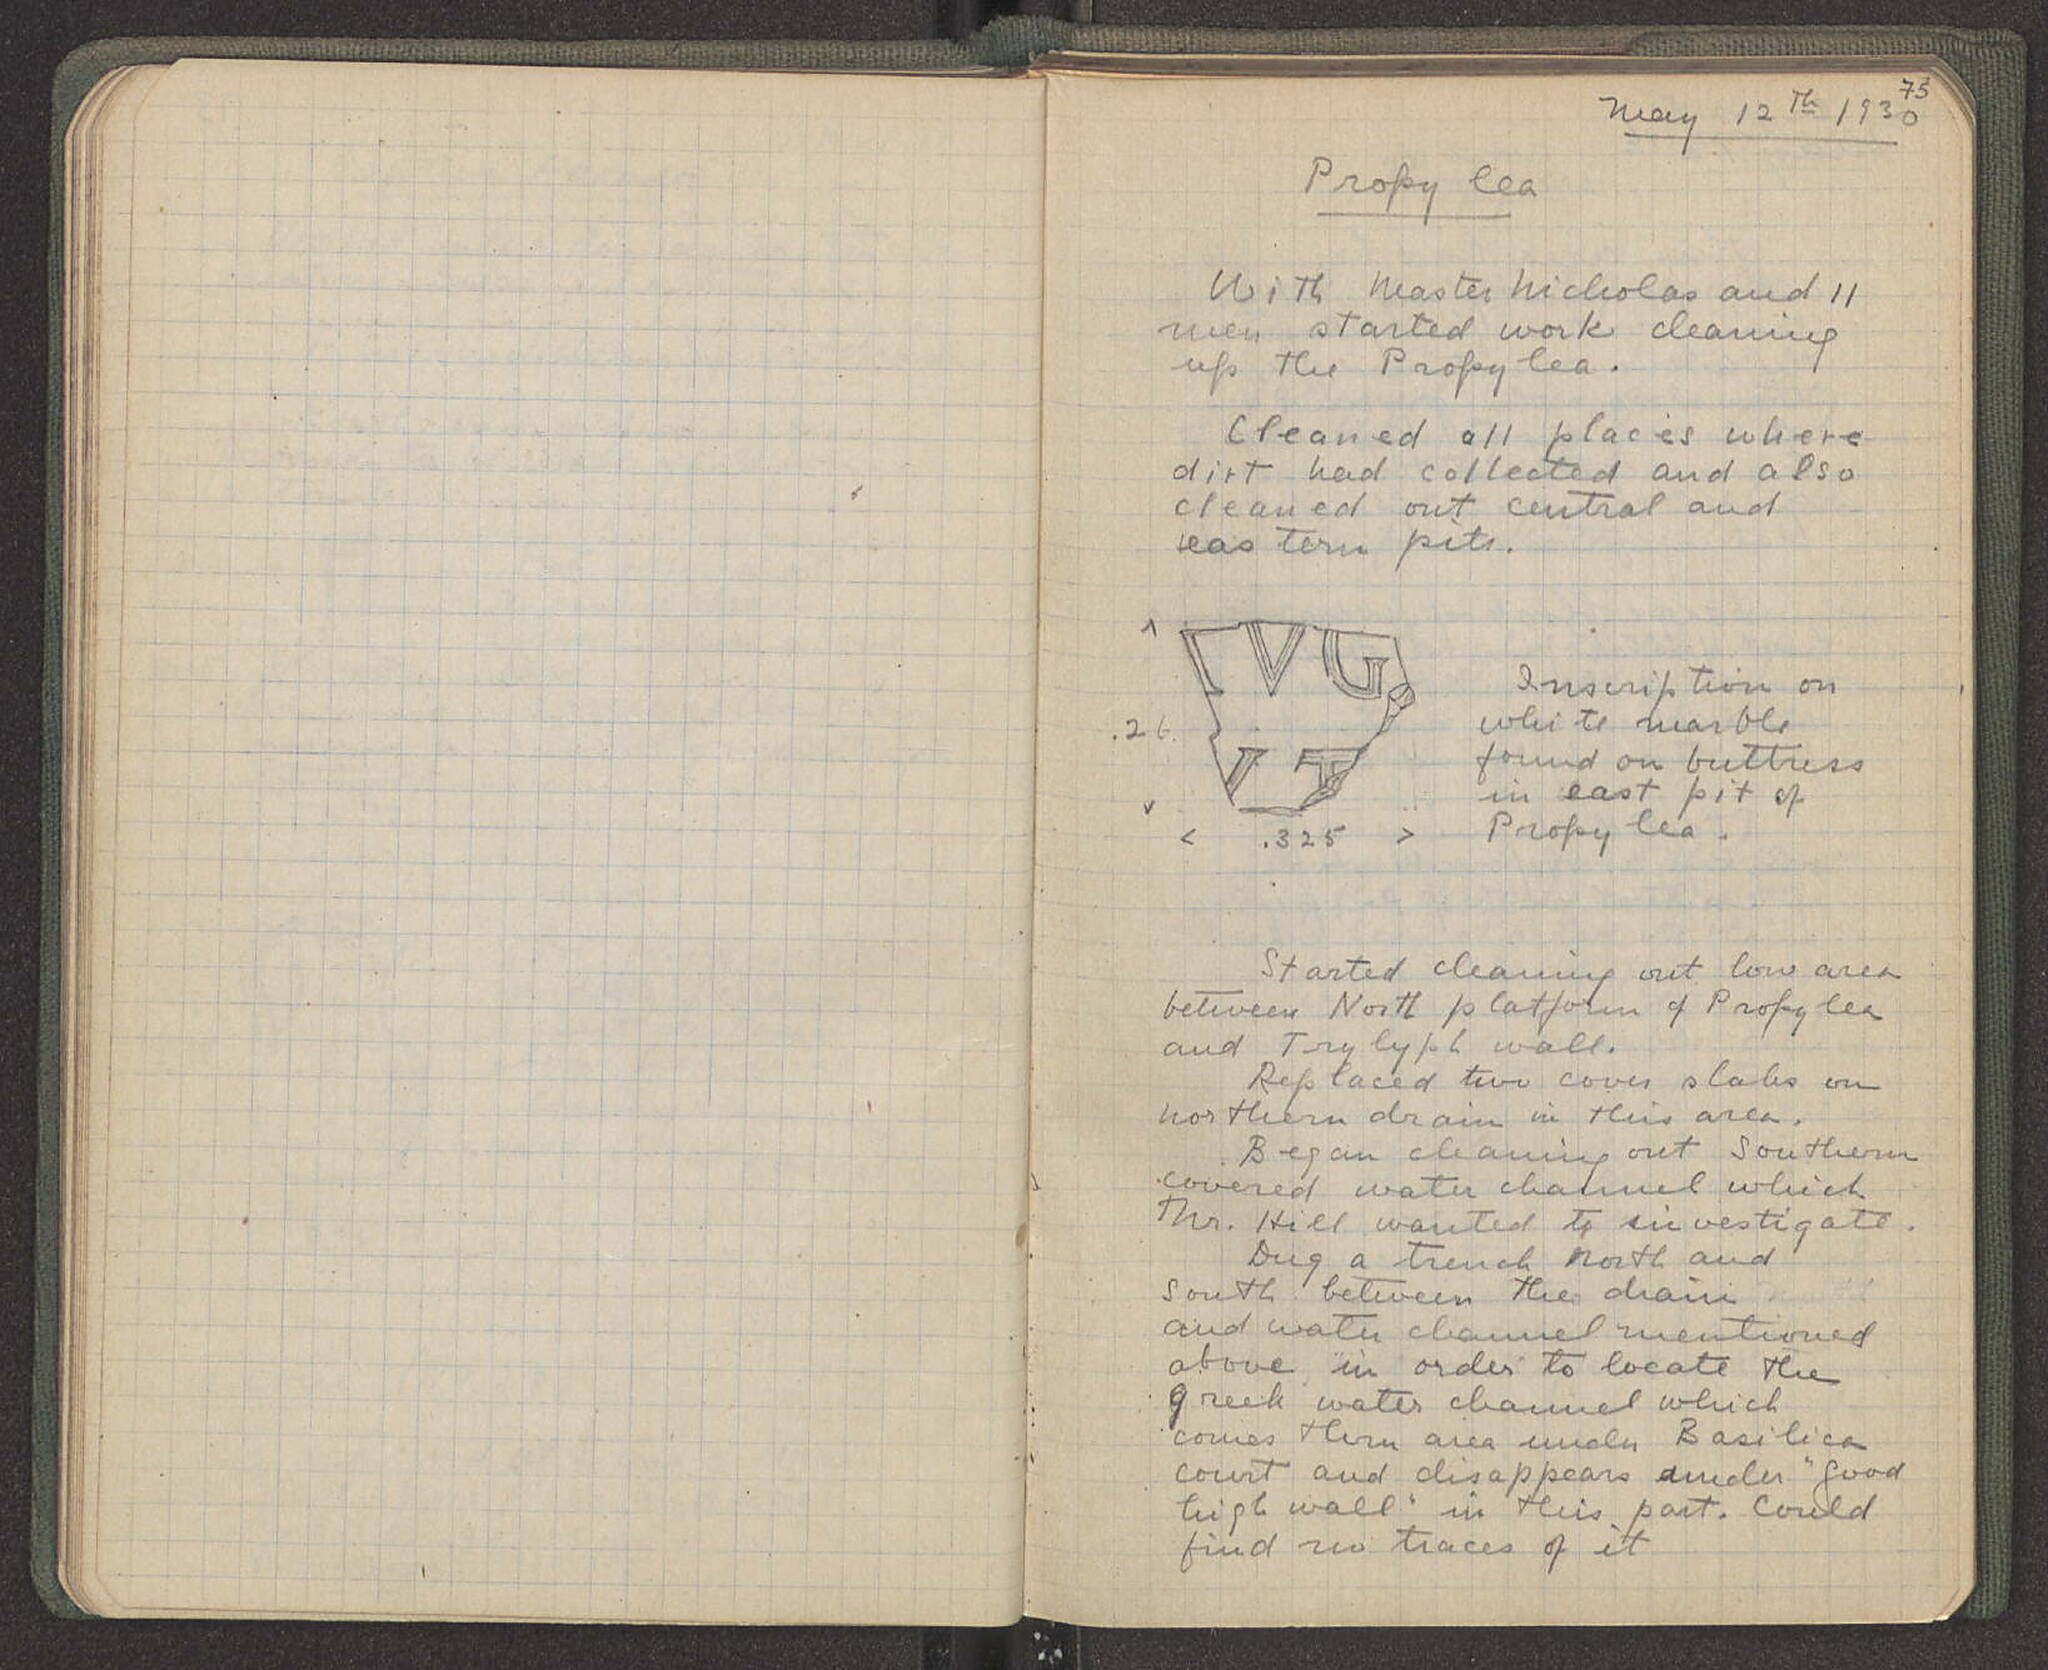 75
May 12th 1930
Propylea
With Master Nicholas and 11
men started work cleaning
up the Propylea.
Cleaned all places where
dirt had collected and also
cleaned out central and
eastern pits.
VG
.26
.325
Inscription on
white marble
found on buttress
in east pit of
Propylea.
Started cleaning out low area
between North platform of Propylea
and Trylyph wall.
Replaced two cover slabs on
northern drain in this area.
Began cleaning out Southern
covered water channel which
Mr. Hill wanted to investigate.
Dug a trench North and
South between the drain
and water channel mentioned
above in order to locate the
greek water channel which
comes thru area under Basilica
court and disappears under "good
high wall" in this part. Could
find no traces of it